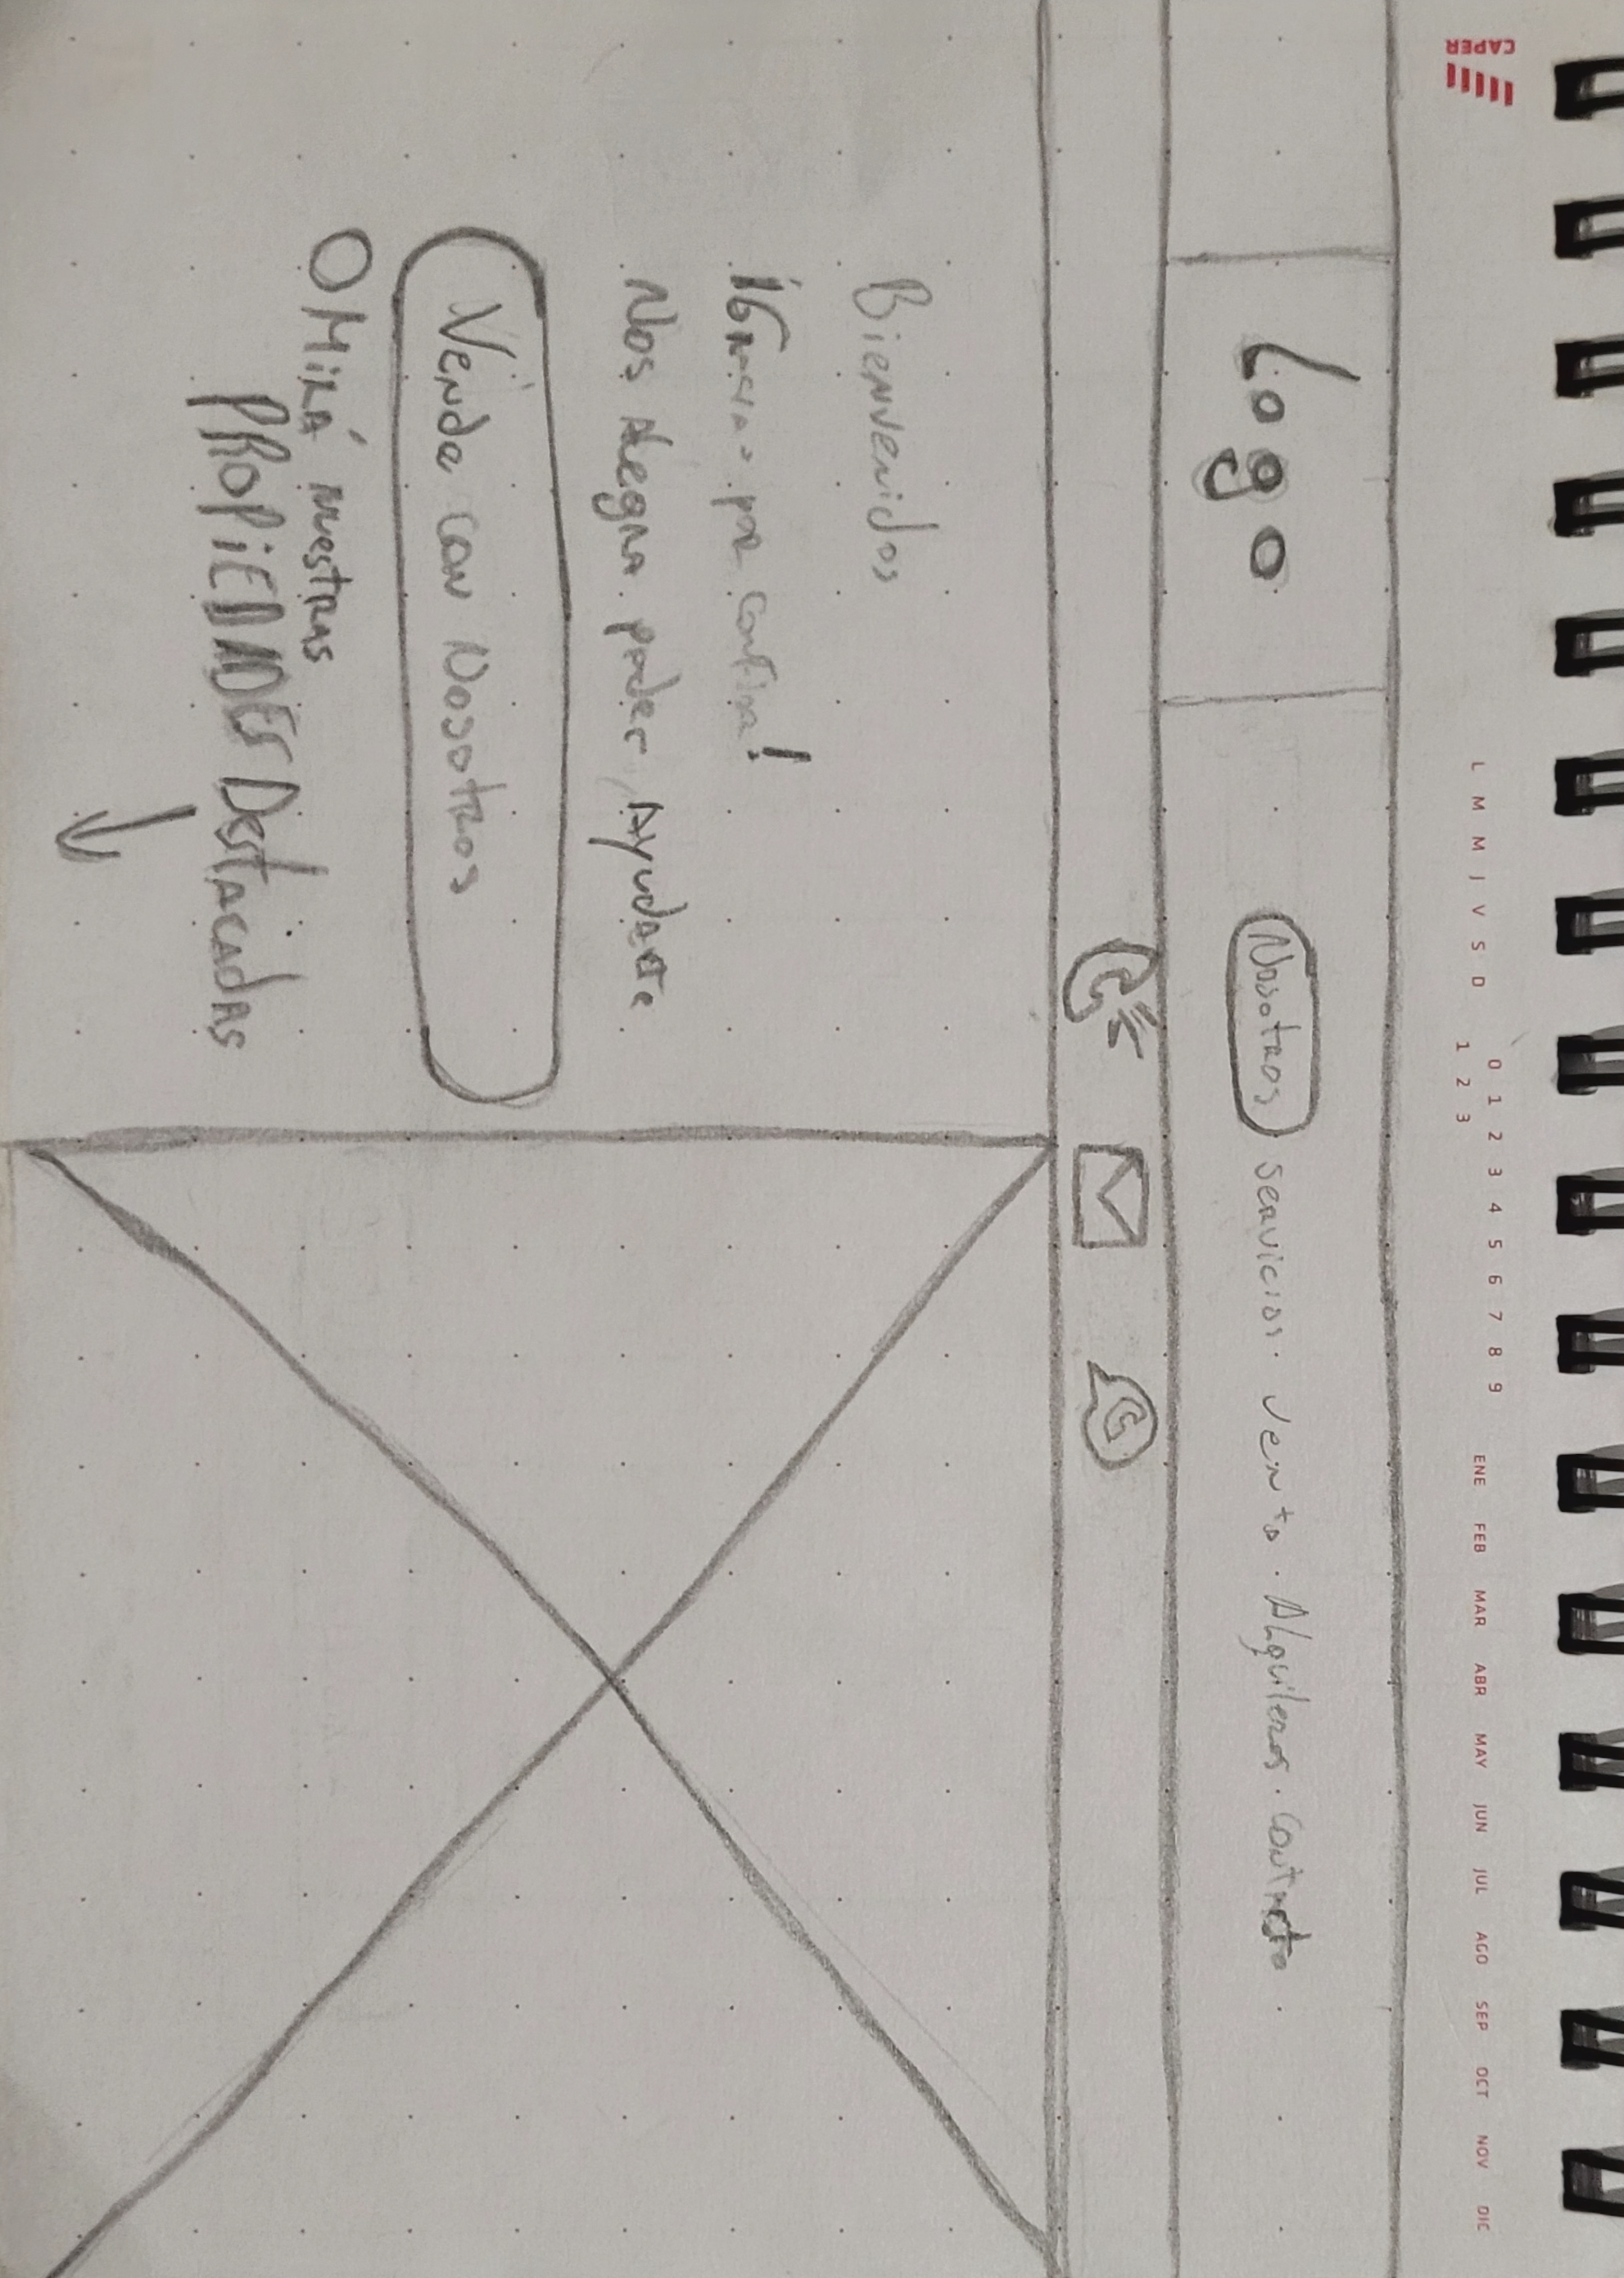 CAPER
L M M J V S D
0 1 2 3 4 5 6 7 8 9
1 2 3
ENE FEB MAR ABR MAY JUN JUL AGO SEP OCT NOV DIC
Logo
Nosotros servicios. venta. Alquileres. contacto
Bienvenidos
¡Gracias por confiar!
Nos Alegra poder Ayudarte
Vende con Nosotros
O Mirá nuestras
PROPiEDADES Destacadas